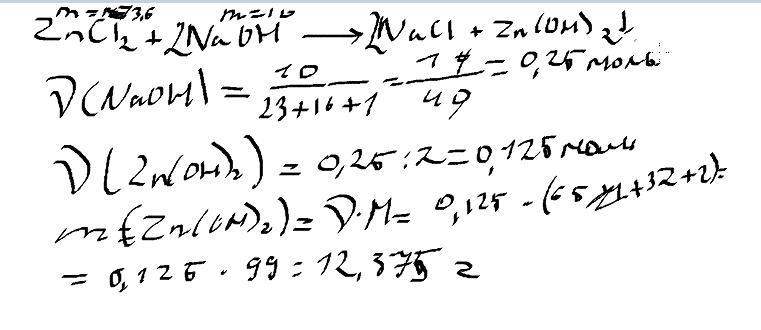 m=13,6 m=10
ZnCl₂ + 2NaOH → 2NaCl + Zn(OH)₂↓
ν(NaOH) = 10/(23+16+1) = 10/40 = 0,25 моль
ν(Zn(OH)₂) = 0,25 : 2 = 0,125 моль
m(Zn(OH)₂) = ν·M = 0,125 · (65+32+2) =
= 0,125 · 99 = 12,375 г